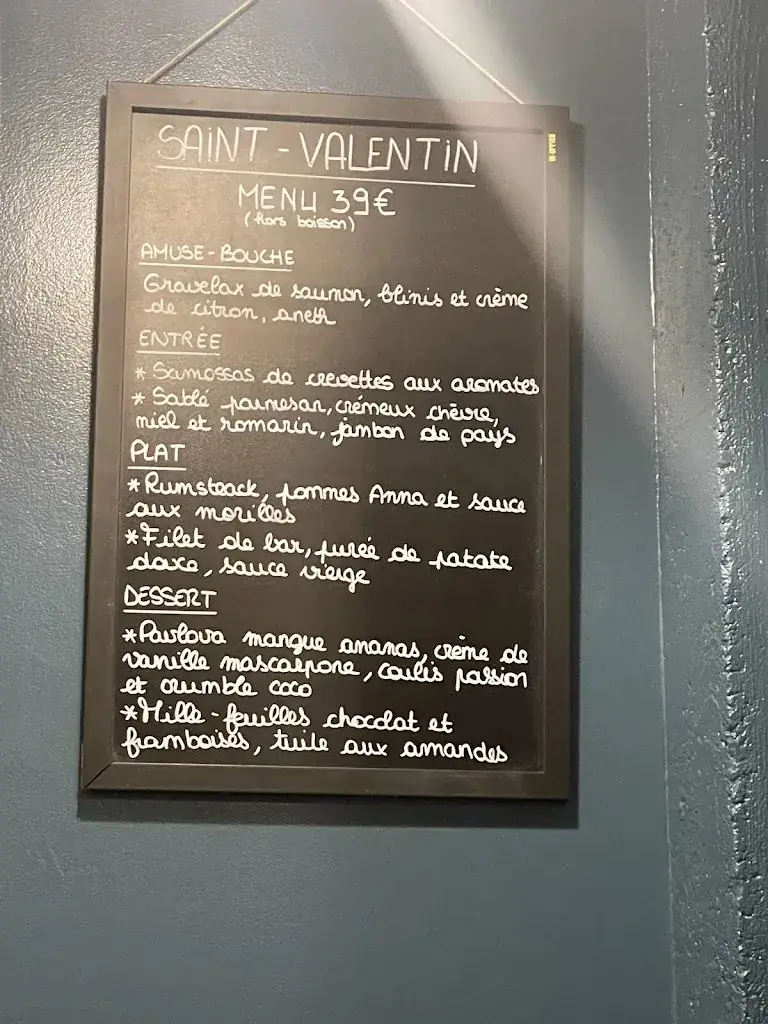 SAINT - VALENTIN
MENU 39€
(hors boisson)
AMUSE - BOUCHE
Gravelax de saumon, blinis et crème
de citron, aneth
ENTRÉE
* Samossas de crevettes aux aromates
* Sablé parmesan, crémeux chèvre,
miel et romarin, jambon de pays
PLAT
* Rumsteack, pommes Anna et sauce
aux morilles
* Filet de bar, purée de patate
douce, sauce vierge
DESSERT
* Pavlova mangue ananas, crème de
vanille mascarpone, coulis passion
et crumble coco
* Mille - feuilles chocolat et
framboises, tuile aux amandes